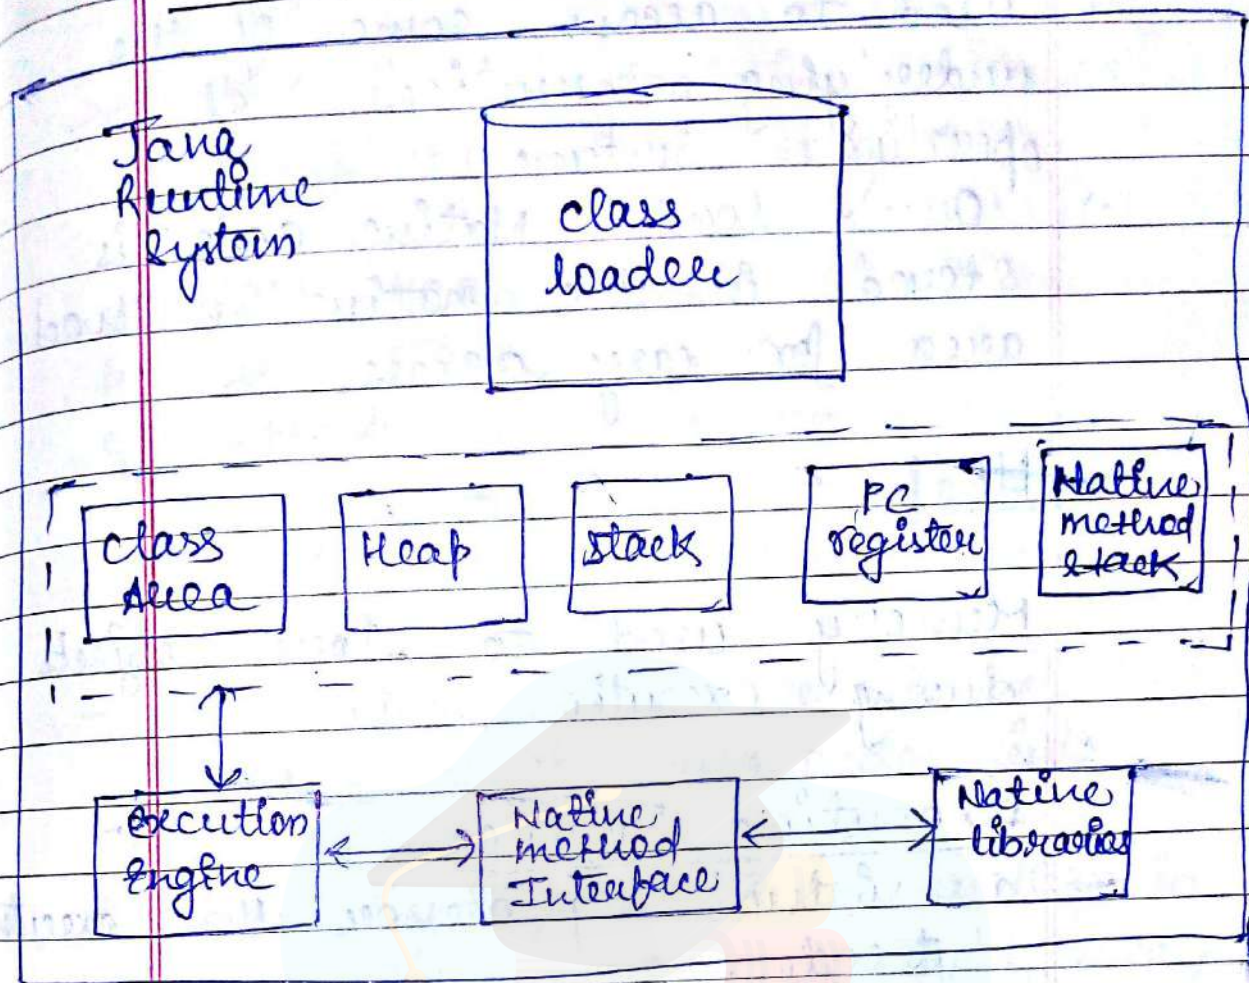 Java
Runtime
System
class
loader
class
Area
Heap
stack
PC
register
Native
method
stack
Execution
Engine
Native
method
Interface
Native
libraries